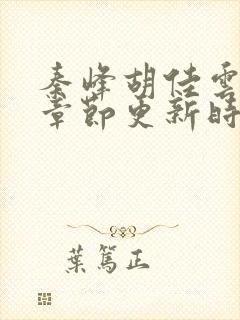 秦峰胡佳雲
章節更新時
葉篤正